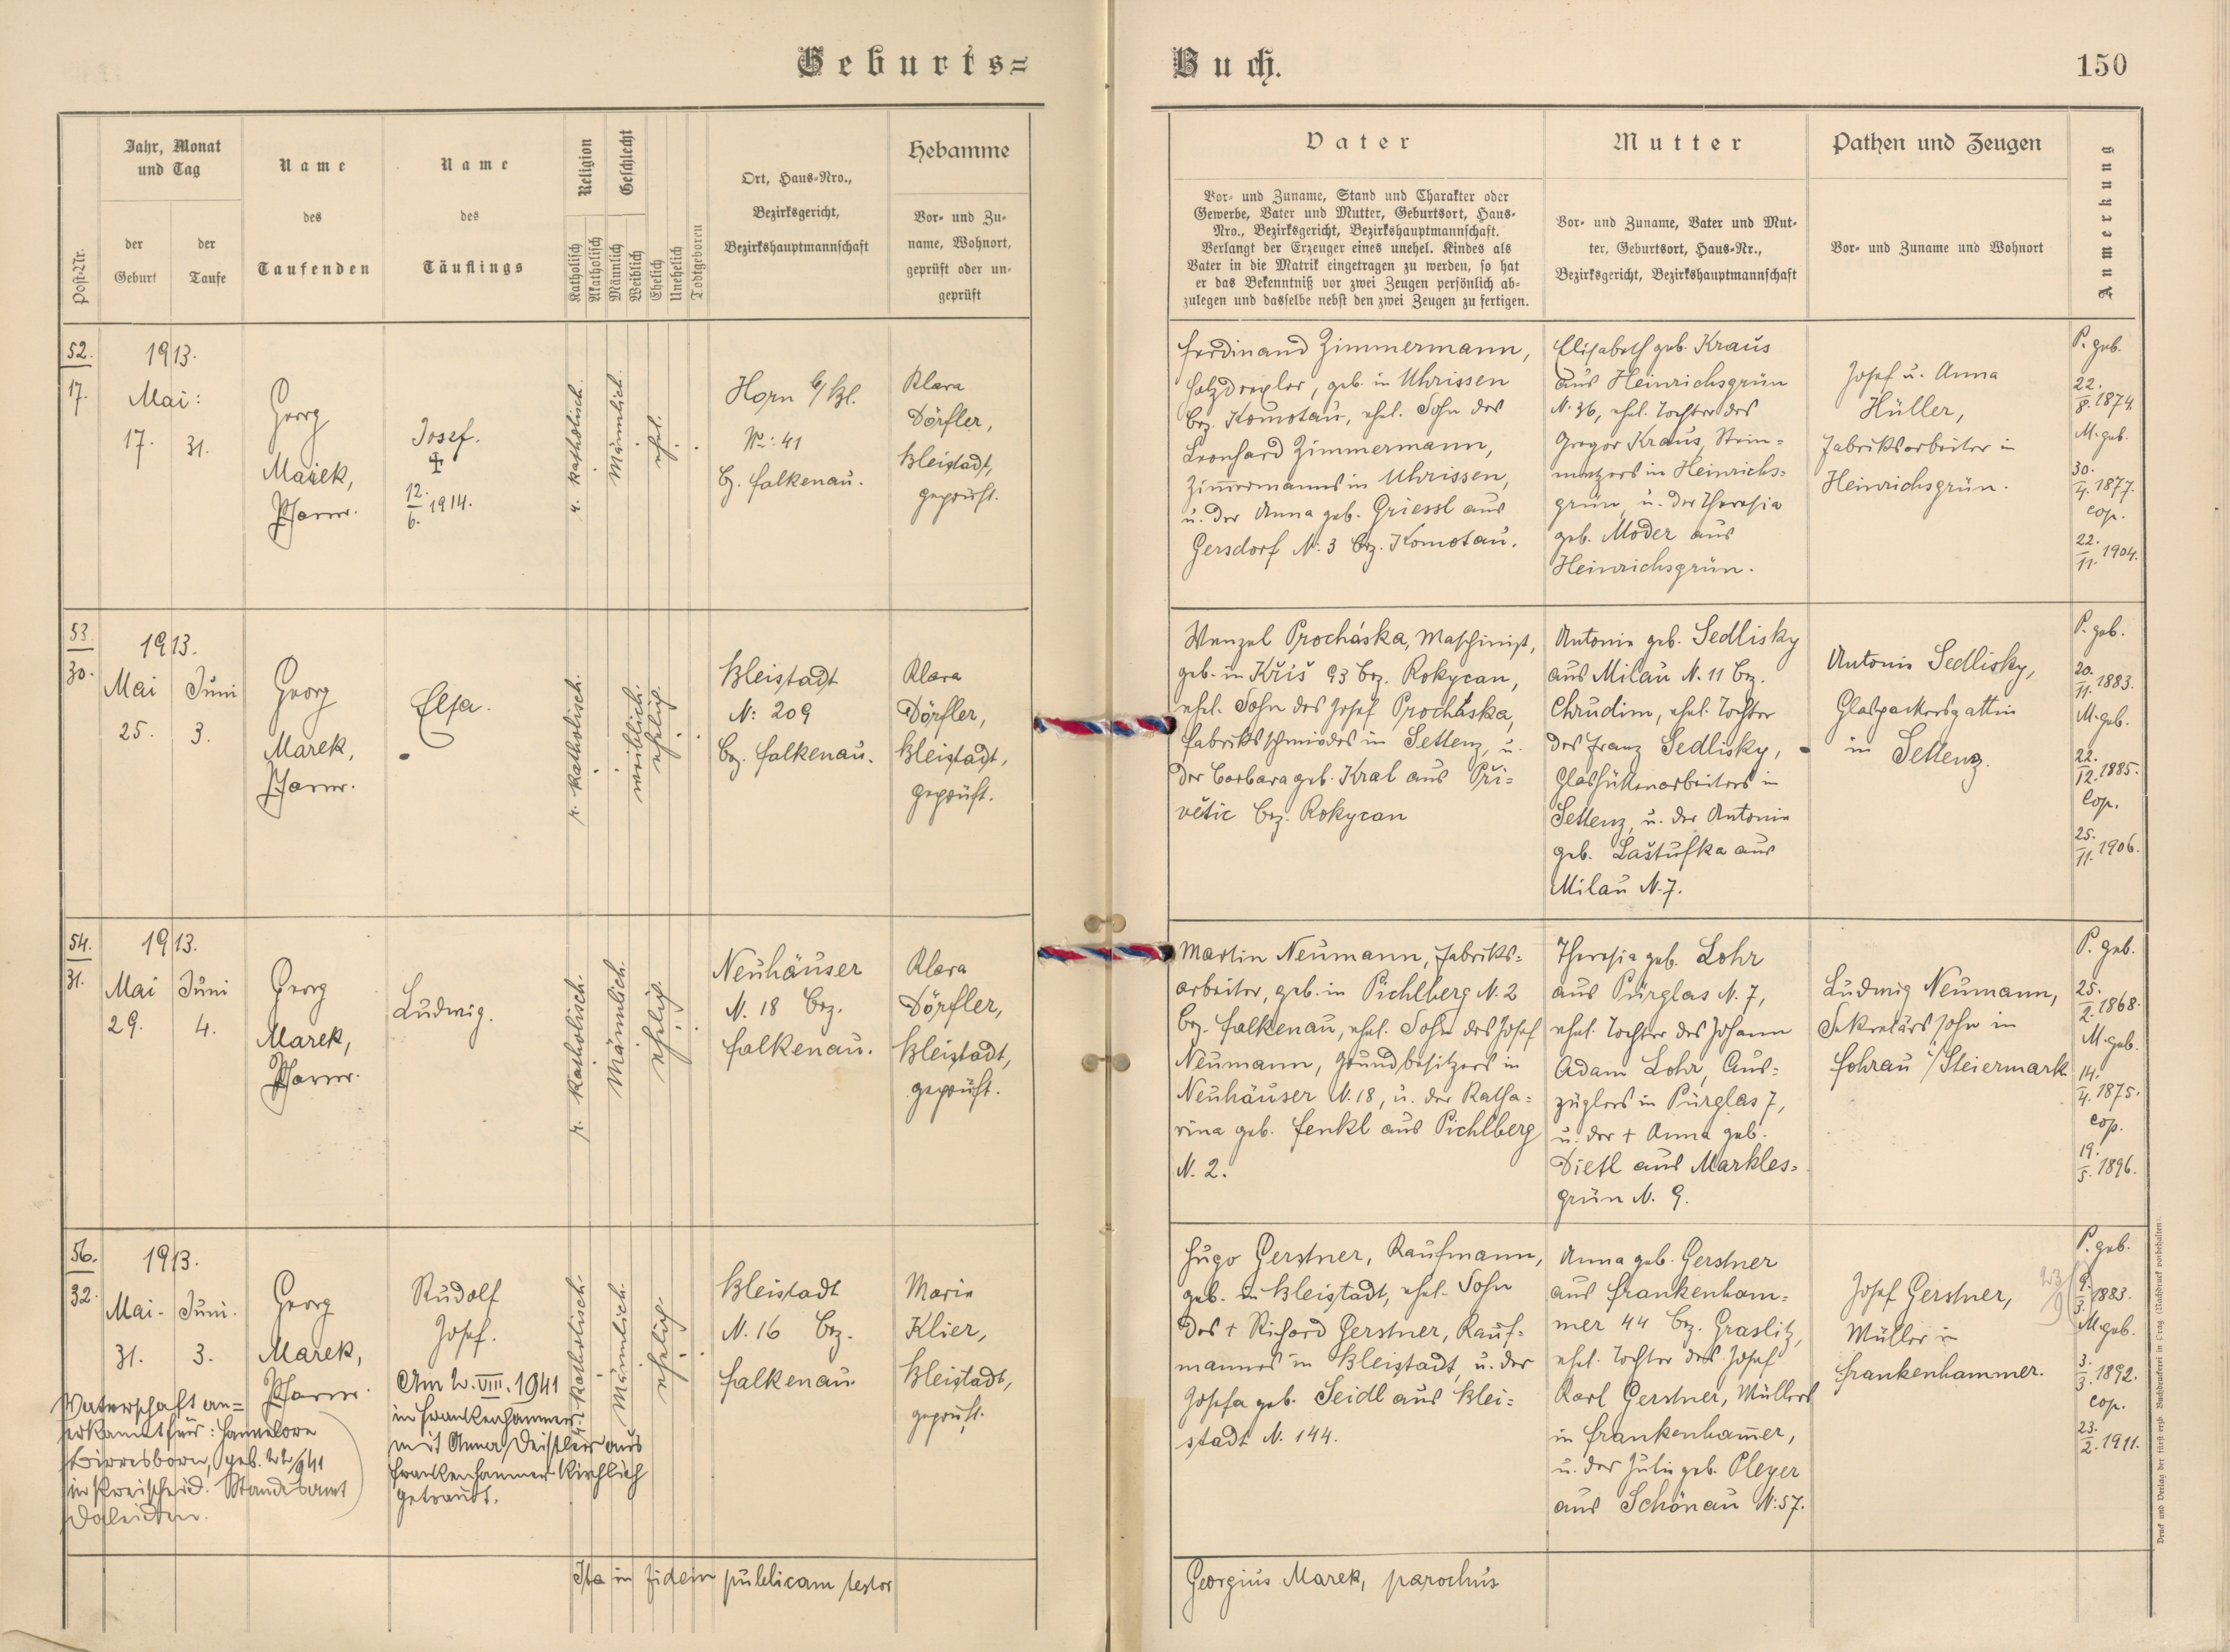 Geburts=
Buch.
150
Post-Nr.
Jahr, Monat
und Tag
der
Geburt
der
Taufe
Name
des
Taufenden
Name
des
Täuflings
Religion
Katholisch
Akatholisch
Geschlecht
Männlich
Weiblich
Ehelich
Unehelich
Todtgeboren
Ort, Haus-Nro.,
Bezirksgericht,
Bezirkshauptmannschaft
Hebamme
Vor- und Zu-
name, Wohnort,
geprüft oder un-
geprüft
Vater
Vor- und Zuname, Stand und Charakter oder
Gewerbe, Vater und Mutter, Geburtsort, Haus-
Nro., Bezirksgericht, Bezirkshauptmannschaft.
Verlangt der Erzeuger eines unehel. Kindes als
Vater in die Matrik eingetragen zu werden, so hat
er das Bekenntniß vor zwei Zeugen persönlich ab-
zulegen und dasselbe nebst den zwei Zeugen zu fertigen.
Mutter
Vor- und Zuname, Vater und Mut-
ter, Geburtsort, Haus-Nr.,
Bezirksgericht, Bezirkshauptmannschaft
Pathen und Zeugen
Vor- und Zuname und Wohnort
Anmerkung
52.
17.
1913.
Mai:
17. 31.
Georg
Marek,
Pfarrer.
Josef.
12.
6. 1914.
r. katholisch.
Männlich.
ehel.
Horn b/Bl.
No: 41
Bz. Falkenau.
Klara
Dörfler,
Bleistadt,
geprüft.
Ferdinand Zimmermann,
Holzdrexler, geb. in Uhrissen
Bez. Komotau, ehel. Sohn des
Leonhard Zimmermann,
Zimmermanns in Uhrissen,
u. der Anna geb. Griessl aus
Gersdorf N: 3 Bez. Komotau.
Elisabeth geb. Kraus
aus Heinrichsgrün
N. 36, ehel. Tochter des
Gregor Kraus, Stein=
metzers in Heinrichs=
grün, u. der Theresia
geb. Moder aus
Heinrichsgrün.
Josef u. Anna
Hüller,
Fabriksarbeiter in
Heinrichsgrün.
P. geb.
22.
8. 1874.
M. geb.
30.
4. 1877.
cop.
22.
11. 1904.
53.
30.
1913.
Mai Juni
25. 3.
Georg
Marek,
Pfarrer.
Elsa.
r. katholisch.
weiblich.
ehelig.
Bleistadt
N: 209
Bez. Falkenau.
Klara
Dörfler,
Bleistadt,
geprüft.
Wenzel Procháska, Maschinist,
geb. in Křiš 93 Bez. Rokycan,
ehel. Sohn des Josef Procháska,
Fabriksschmiedes in Settenz, u.
der Barbara geb. Kral aus Při=
větic Bez. Rokycan
Antonie geb. Sedlisky
aus Milau N. 11 Bez.
Chrudim, ehel. Tochter
des Franz Sedlisky,
Glashüttenarbeiters in
Settenz, u. der Antonie
geb. Laštufka aus
Milau N. 7.
Antonie Sedlisky,
Glaspackersgattin
in Settenz.
P. geb.
20.
11. 1883.
M. geb.
22.
12. 1885.
Cop.
25.
11. 1906.
54.
31.
1913.
Mai Juni
29. 4.
Georg
Marek,
Pfarrer.
Ludwig.
r. katholisch.
Männlich.
ehelig.
Neuhäuser
N. 18 Bez.
Falkenau.
Klara
Dörfler,
Bleistadt,
geprüft.
Martin Neumann, Fabriks=
arbeiter, geb. in Pichlberg N. 2
Bez. Falkenau, ehel. Sohn des Josef
Neumann, Grundbesitzers in
Neuhäuser N. 18, u. der Katha=
rina geb. Fenkl aus Pichlberg
N. 2.
Theresia geb. Lohr
aus Pürglas N. 7,
ehel. Tochter des Johann
Adam Lohr, Aus=
züglers in Pürglas 7,
u. der + Anna geb.
Dietl aus Markles=
grün N. 9.
Ludwig Neumann,
Sekretärssohn in
Fohrau i/Steiermark
P. geb.
25.
2. 1868.
M. geb.
14.
4. 1875.
cop.
19.
5. 1896.
56.
32.
1913.
Mai. Juni.
31. 3.
Georg
Marek,
Pfarrer.
Rudolf
Josef.
Am 2. VIII. 1941
in Frankenhammer
mit Anna Deistler aus
Frankenhammer kirchlich
getraut.
Vaterschaft an=
erkannt für: Hannelore
Birresborn, geb.
in Kreischeid. Standesamt
Daleiden.
r. katholisch.
Männlich.
ehelig.
Bleistadt
N. 16 Bez.
Falkenau
Marie
Klier,
Bleistadt,
geprüft.
Hugo Gerstner, Kaufmann,
geb. in Bleistadt, ehel. Sohn
des + Richard Gerstner, Kauf=
mannes in Bleistadt, u. der
Josefa geb. Seidl aus Blei=
stadt N. 144.
Anna geb. Gerstner
aus Frankenham=
mer 44 Bez. Graslitz,
ehel. Tochter des Josef
Karl Gerstner, Müllers
in Frankenhamer,
u. der Julie geb. Pleyer
aus Schönau N: 57.
Josef Gerstner,
Müller in
Frankenhammer.
P. geb.
9.
3. 1883.
M. geb.
3.
3. 1892.
cop.
23.
2. 1911.
Ita in fidem publicam testor
Georgius Marek, parochus
Druck und Verlag der fürst-erzb. Buchdruckerei in Prag. (Nachdruck vorbehalten).